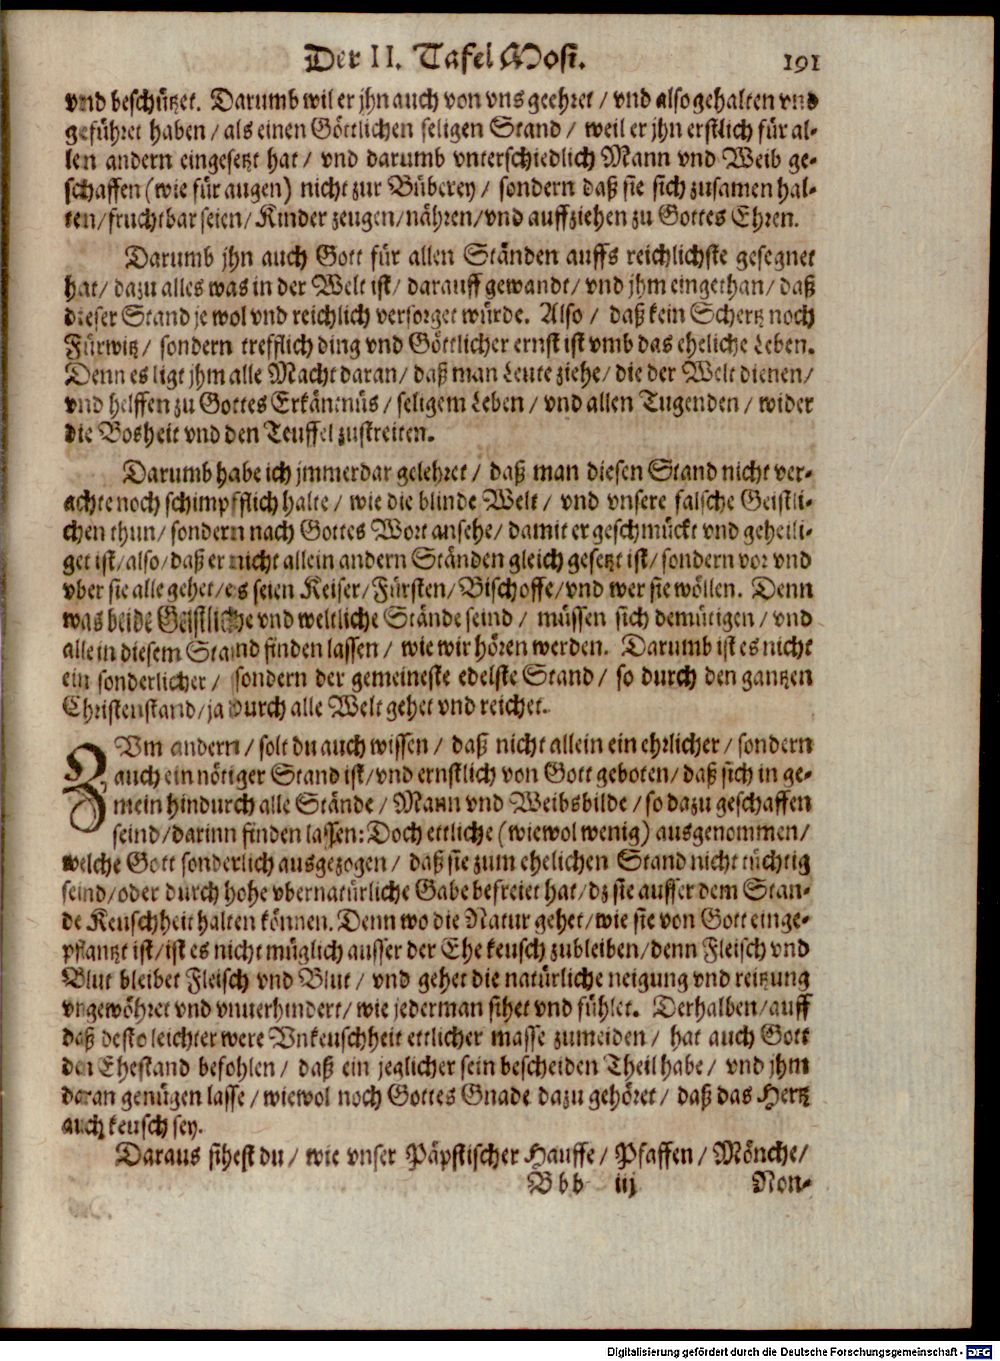 Der II. Tafel Mosi. 191
vnd beschützet. Darumb wil er jhn auch von vns geehret / vnd also gehalten vnd
geführet haben / als einen Göttlichen seligen Stand / weil er jhn erstlich für al-
len andern eingesetzt hat / vnd darumb vnterschiedlich Mann vnd Weib ge-
schaffen (wie für augen) nicht zur Büberey / sondern daß sie sich zusamen hal-
ten / fruchtbar seien / Kinder zeugen / nähren / vnd auffziehen zu Gottes Ehren.
Darumb jhn auch Gott für allen Ständen auffs reichlichste gesegnet
hat / dazu alles was in der Welt ist / darauff gewandt / vnd jhm eingethan / daß
dieser Stand je wol vnd reichlich versorget würde. Also / daß kein Schertz noch
Fürwitz / sondern trefflich ding vnd Göttlicher ernst ist vmb das eheliche Leben.
Denn es ligt jhm alle Macht daran / daß man Leute ziehe / die der Welt dienen /
vnd helffen zu Gottes Erkäntnüs / seligem Leben / vnd allen Tugenden / wider
die Bosheit vnd den Teuffel zustreiten.
Darumb habe ich jmmerdar gelehret / daß man diesen Stand nicht ver-
achte noch schimpfflich halte / wie die blinde Welt / vnd vnsere falsche Geistli-
chen thun / sondern nach Gottes Wort ansehe / damit er geschmückt vnd geheili-
get ist / also / daß er nicht allein andern Ständen gleich gesetzt ist / sondern vor vnd
vber sie alle gehet / es seien Keiser / Fürsten / Bischoffe / vnd wer sie wöllen. Denn
was beide Geistliche vnd weltliche Stände seind / müssen sich demütigen / vnd
alle in diesem Stand finden lassen / wie wir hören werden. Darumb ist es nicht
ein sonderlicher / sondern der gemeineste edelste Stand / so durch den gantzen
Christenstand / ja durch alle Welt gehet vnd reichet.
ZVm andern / solt du auch wissen / daß nicht allein ein ehrlicher / sondern
auch ein nötiger Stand ist / vnd ernstlich von Gott geboten / daß sich in ge-
mein hindurch alle Stände / Mann vnd Weibsbilde / so dazu geschaffen
seind / darinn finden lassen: Doch ettliche (wiewol wenig) ausgenommen /
welche Gott sonderlich ausgezogen / daß sie zum ehelichen Stand nicht tüchtig
seind / oder durch hohe vbernatürliche Gabe befreiet hat / dz sie ausser dem Stan-
de Keuschheit halten können. Denn wo die Natur gehet / wie sie von Gott einge-
pflantzt ist / ist es nicht müglich ausser der Ehe keusch zubleiben / denn Fleisch vnd
Blut bleibet Fleisch vnd Blut / vnd gehet die natürliche neigung vnd reitzung
vngewöhret vnd vnuerhindert / wie jederman sihet vnd fühlet. Derhalben / auff
daß desto leichter were Vnkeuschheit ettlicher masse zumeiden / hat auch Gott
den Ehestand befohlen / daß ein jeglicher sein bescheiden Theil habe / vnd jhm
daran genügen lasse / wiewol noch Gottes Gnade dazu gehöret / daß das Hertz
auch keusch sey.
Daraus sihest du / wie vnser Päpstischer Hauffe / Pfaffen / Mönche /
Bbb iij Non-
Digitalisierung gefördert durch die Deutsche Forschungsgemeinschaft - DFG